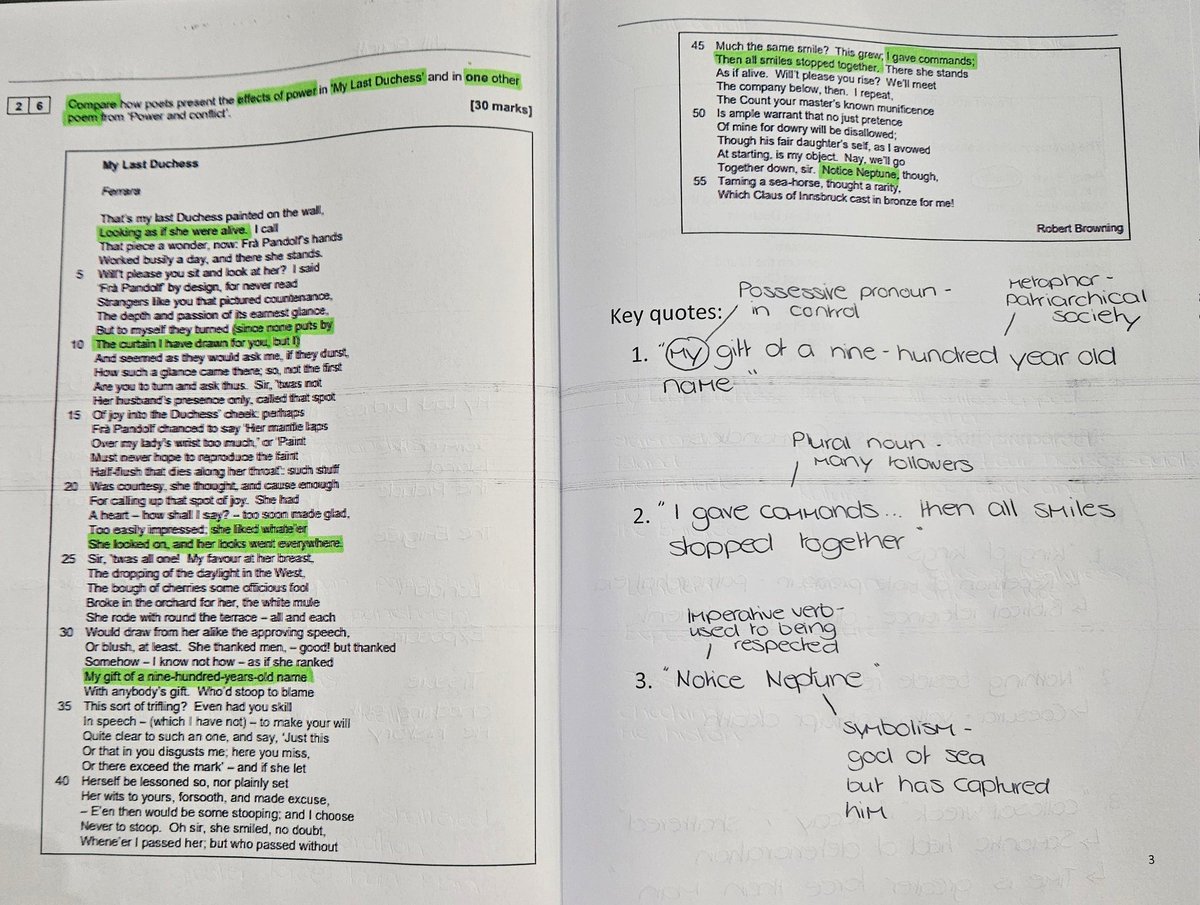 2 6
Compare how poets present the effects of power in 'My Last Duchess' and in one other
poem from 'Power and conflict'.
[30 marks]
My Last Duchess
Ferrara
That's my last Duchess painted on the wall,
Looking as if she were alive. I call
That piece a wonder, now: Frà Pandolf's hands
Worked busily a day, and there she stands.
5 Will't please you sit and look at her? I said
'Frà Pandolf' by design, for never read
Strangers like you that pictured countenance,
The depth and passion of its earnest glance,
But to myself they turned (since none puts by
10 The curtain I have drawn for you, but I)
And seemed as they would ask me, if they durst,
How such a glance came there; so, not the first
Are you to turn and ask thus. Sir, 'twas not
Her husband's presence only, called that spot
15 Of joy into the Duchess' cheek: perhaps
Frà Pandolf chanced to say 'Her mantle laps
Over my lady's wrist too much,' or 'Paint
Must never hope to reproduce the faint
Half-flush that dies along her throat': such stuff
20 Was courtesy, she thought, and cause enough
For calling up that spot of joy. She had
A heart – how shall I say? – too soon made glad,
Too easily impressed; she liked whate'er
She looked on, and her looks went everywhere.
25 Sir, 'twas all one! My favour at her breast,
The dropping of the daylight in the West,
The bough of cherries some officious fool
Broke in the orchard for her, the white mule
She rode with round the terrace – all and each
30 Would draw from her alike the approving speech,
Or blush, at least. She thanked men, – good! but thanked
Somehow – I know not how – as if she ranked
My gift of a nine-hundred-years-old name
With anybody's gift. Who'd stoop to blame
35 This sort of trifling? Even had you skill
In speech – (which I have not) – to make your will
Quite clear to such an one, and say, 'Just this
Or that in you disgusts me; here you miss,
Or there exceed the mark' – and if she let
40 Herself be lessoned so, nor plainly set
Her wits to yours, forsooth, and made excuse,
– E'en then would be some stooping; and I choose
Never to stoop. Oh sir, she smiled, no doubt,
Whene'er I passed her; but who passed without
45 Much the same smile? This grew; I gave commands;
Then all smiles stopped together. There she stands
As if alive. Will't please you rise? We'll meet
The company below, then. I repeat,
The Count your master's known munificence
50 Is ample warrant that no just pretence
Of mine for dowry will be disallowed;
Though his fair daughter's self, as I avowed
At starting, is my object. Nay, we'll go
Together down, sir. Notice Neptune, though,
55 Taming a sea-horse, thought a rarity,
Which Claus of Innsbruck cast in bronze for me!
Robert Browning
Possessive pronoun -
in control
Metaphor -
patriarchical
society
Key quotes:
1. "My gift of a nine-hundred year old
name"
Plural noun -
many followers
2. "I gave commands... then all smiles
stopped together"
Imperative verb -
used to being
respected
3. "Notice Neptune"
symbolism -
god of sea
but has captured
him
3